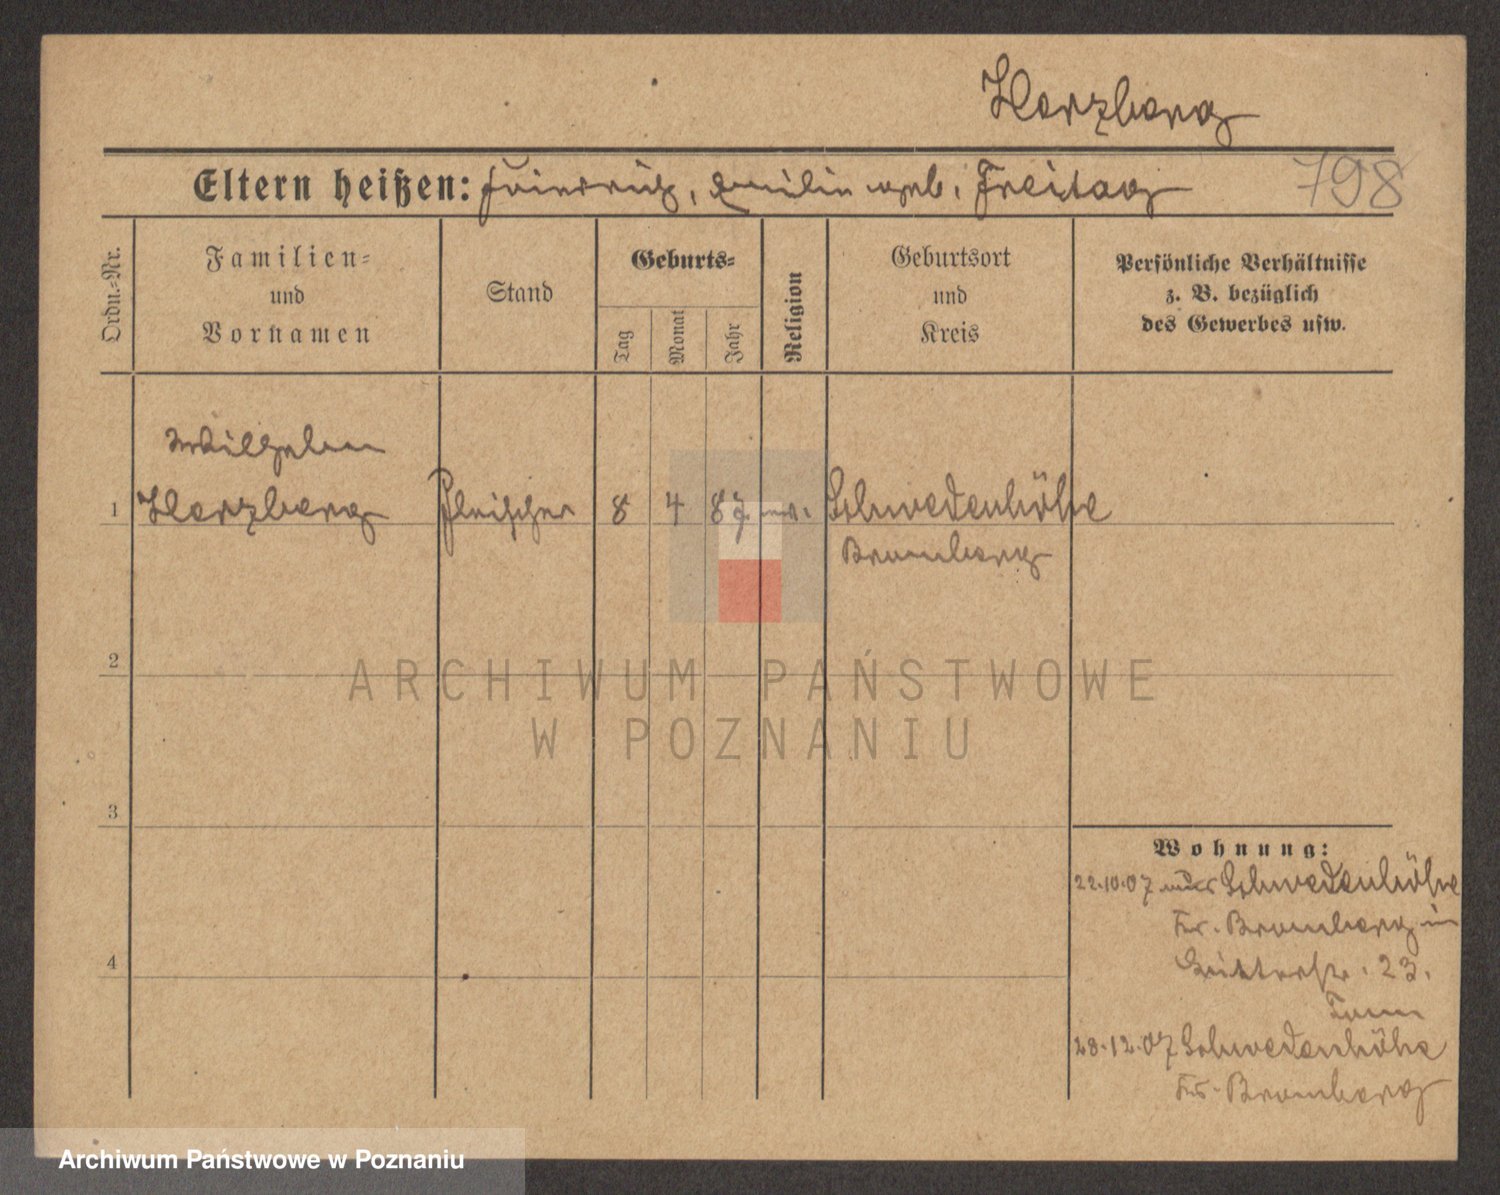 Herzberg
Eltern heißen: Friedrich, Emilie geb. Freitag
798
Ordn.-Nr.
Familien-
und
Vornamen
Stand
Geburts-
Tag
Monat
Jahr
Religion
Geburtsort
und
Kreis
Persönliche Verhältnisse
z. B. bezüglich
des Gewerbes usw.
Wilhelm
1 Herzberg Fleischer 8 4 87 ev. Schwedenhöhe
Bromberg
2
3
4
ARCHIWUM PAŃSTWOWE
W POZNANIU
Wohnung:
22.10.07 Schwedenhöhe
Kr. Bromberg in
23.
28.12.07 Schwedenhöhe
Kr. Bromberg
Archiwum Państwowe w Poznaniu